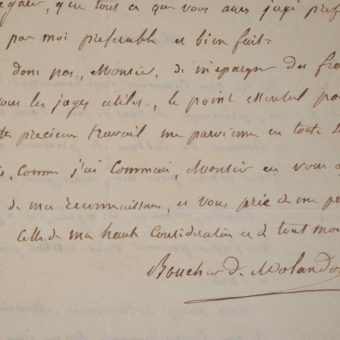 égard, que tout ce que vous aurez jugé préf
par moi préférable et bien fait.
donc pas, Monsieur, de m'épargner des fra
vous les jugez utiles, le point essentiel po
précieux travail me parvienne en toute
comme j'ai commencé, Monsieur en vous
de ma reconnaissance, et vous prie de me pe
celle de ma haute considération et de tout mo
Boucher de Molandon